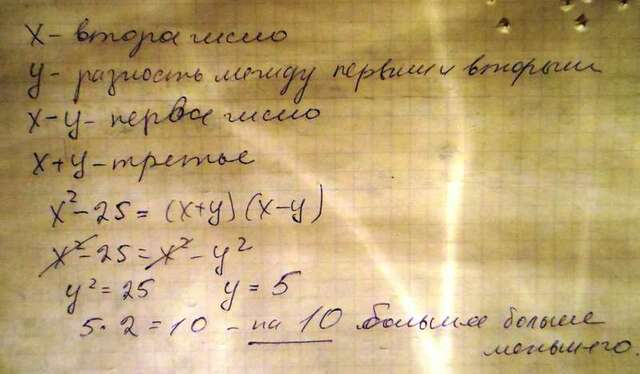 x - второе число
y - разность между первым и вторым
x-y - первое число
x+y - третье
x² - 25 = (x+y)(x-y)
x² - 25 = x² - y²
y² = 25 y = 5
5 · 2 = 10 - на 10 больше
меньшего.